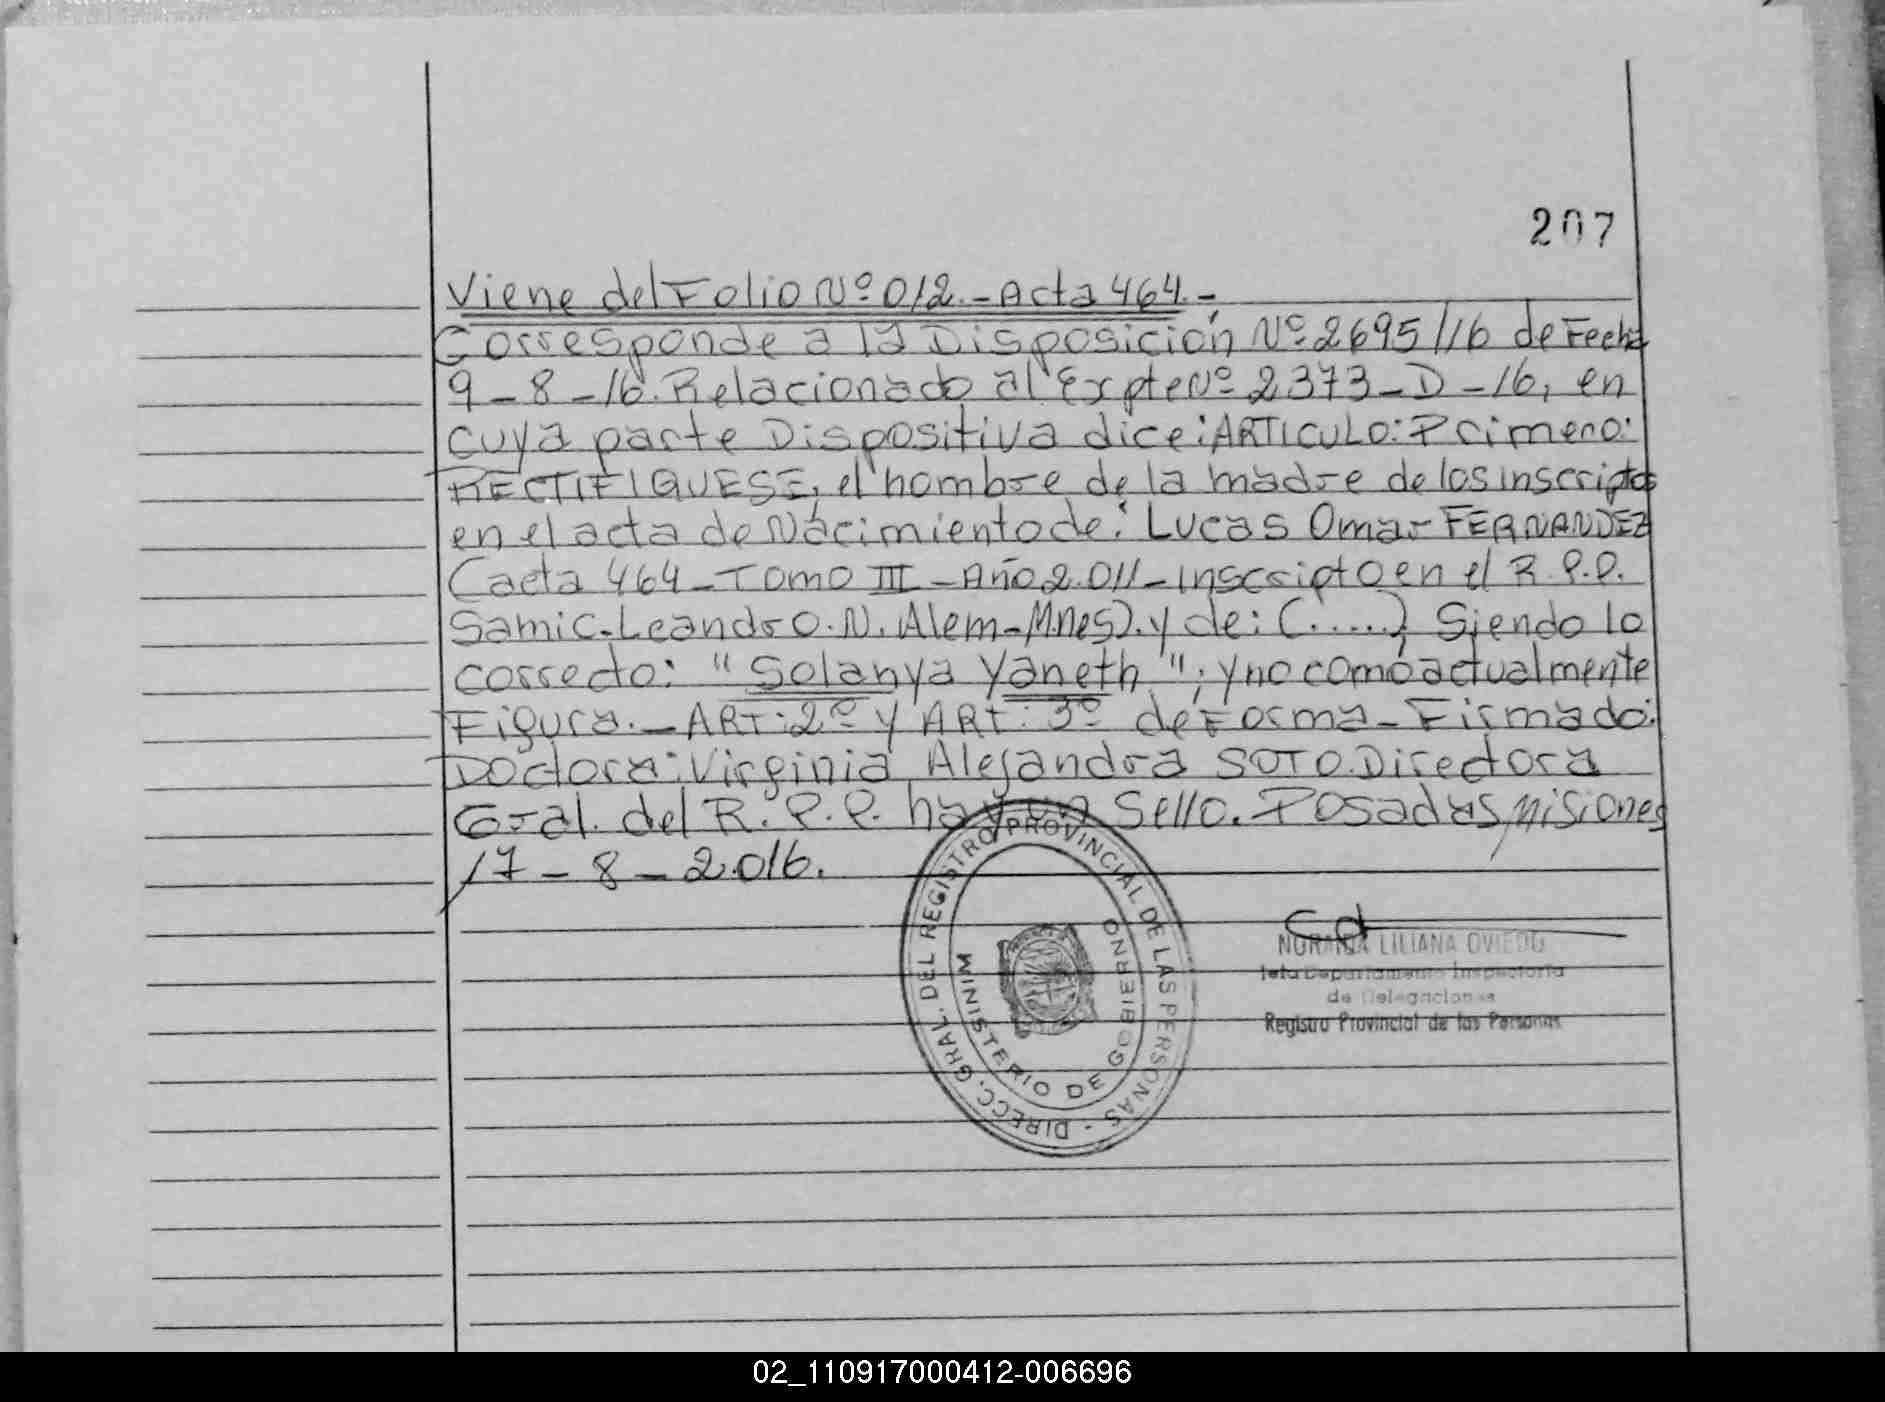 207
Viene del Folio Nº 012.- Acta 464.-
Corresponde a la Disposición Nº 2695/16 de Fecha
9-8-16. Relacionado al Expte Nº 2373-D-16, en
cuya parte Dispositiva dice: ARTICULO: Primero:
RECTIFIQUESE, el nombre de la madre de los inscriptos
en el acta de Nacimiento de: Lucas Omar FERNANDEZ
(acta 464-Tomo III-Año 2.011-Inscripto en el R.P.P.
Samic-Leandro.N.Alem-Mnes).y de: (.....) Siendo lo
correcto: "Solanya Yaneth"; y no como actualmente
Figura.- ART: 2º y ART: 3º de Forma-Firmado:
Doctora: Virginia Alejandra SOTO. Directora
Gral. del R.P.P. hay un Sello. Posadas, Misiones
17-8-2.016.
DIRECC. GRAL. DEL REGISTRO PROVINCIAL DE LAS PERSONAS -
MINISTERIO DE GOBIERNO
LILIANA OVIEDO
Jefa Departamento Inspectoria
de Delegaciones
Registro Provincial de las Personas
02_110917000412-006696